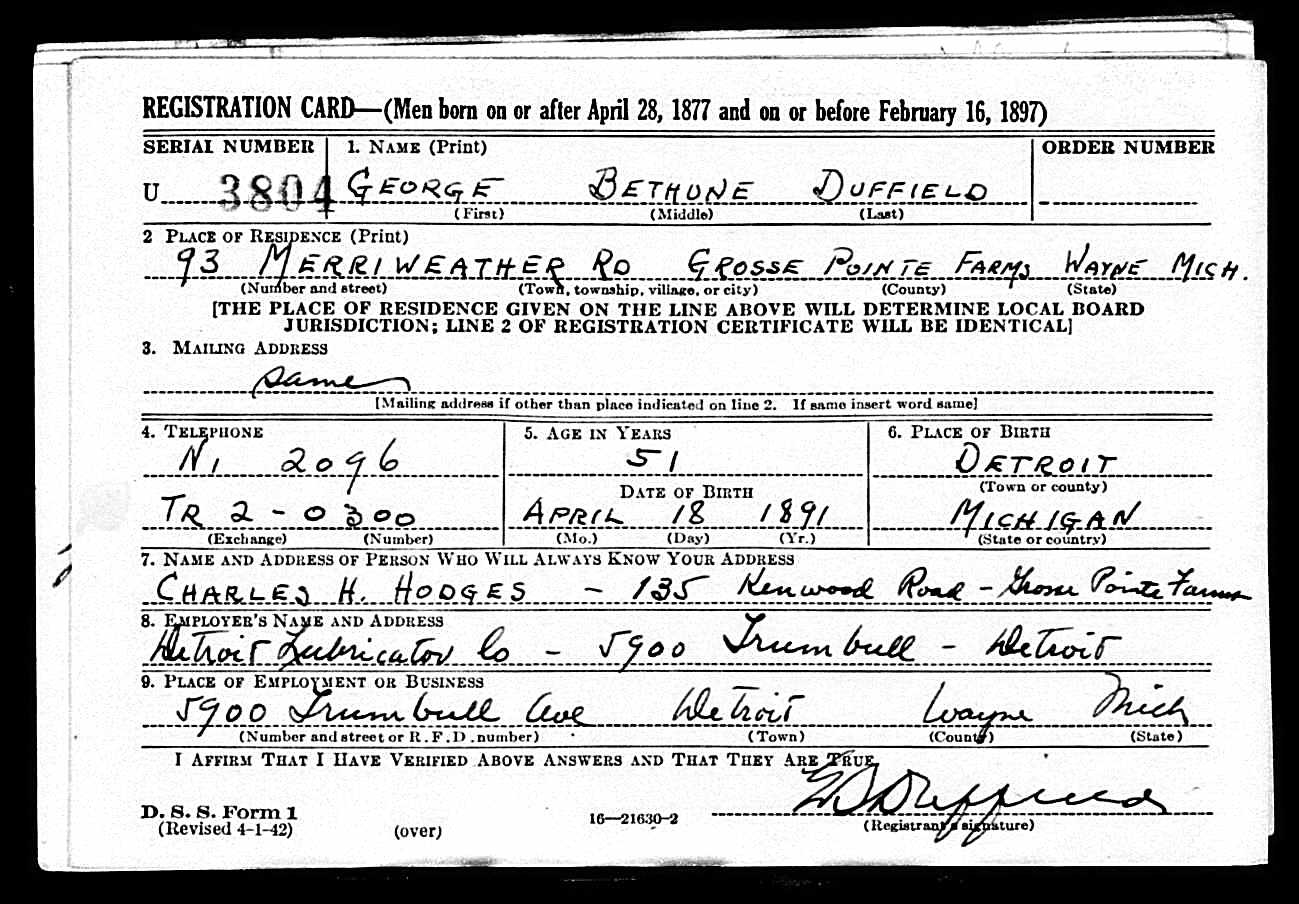 REGISTRATION CARD—(Men born on or after April 28, 1877 and on or before February 16, 1897)
SERIAL NUMBER 1. NAME (Print) ORDER NUMBER
U 3804 GEORGE BETHUNE DUFFIELD
(First) (Middle) (Last)
2 PLACE OF RESIDENCE (Print)
93 MERRIWEATHER RD GROSSE POINTE FARMS WAYNE MICH.
(Number and street) (Town, township, village, or city) (County) (State)
[THE PLACE OF RESIDENCE GIVEN ON THE LINE ABOVE WILL DETERMINE LOCAL BOARD
JURISDICTION; LINE 2 OF REGISTRATION CERTIFICATE WILL BE IDENTICAL]
3. MAILING ADDRESS
same
[Mailing address if other than place indicated on line 2. If same insert word same]
4. TELEPHONE 5. AGE IN YEARS 6. PLACE OF BIRTH
NI 2096 51 DETROIT
DATE OF BIRTH (Town or county)
TR 2-0300 APRIL 18 1891 MICHIGAN
(Exchange) (Number) (Mo.) (Day) (Yr.) (State or country)
7. NAME AND ADDRESS OF PERSON WHO WILL ALWAYS KNOW YOUR ADDRESS
CHARLES H. HODGES - 135 Kenwood Road - Grosse Pointe Farms
8. EMPLOYER'S NAME AND ADDRESS
Detroit Lubricator Co - 5900 Trumbull - Detroit
9. PLACE OF EMPLOYMENT OR BUSINESS
5900 Trumbull Ave Detroit Wayne Mich
(Number and street or R.F.D. number) (Town) (County) (State)
I AFFIRM THAT I HAVE VERIFIED ABOVE ANSWERS AND THAT THEY ARE TRUE.
GB Duffield
D. S. S. Form 1
(Revised 4-1-42) (over) 16—21630-2 (Registrant's signature)